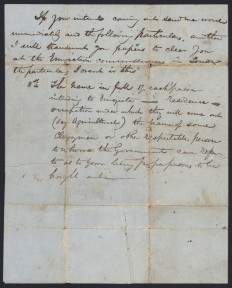 If you intend coming out send me word
immediately and the following particulars, and then
I will transmit you papers to clear you
at the Emigration commissioners in London
the particulars I want is this
The name in full of each person
intending to Emigrate — Residence —
occupation under which they will come out
(say Agricultural) the name of some
Clergyman or other respectable person
to whom the Government can refer
to as to your being proper persons to be
brought out